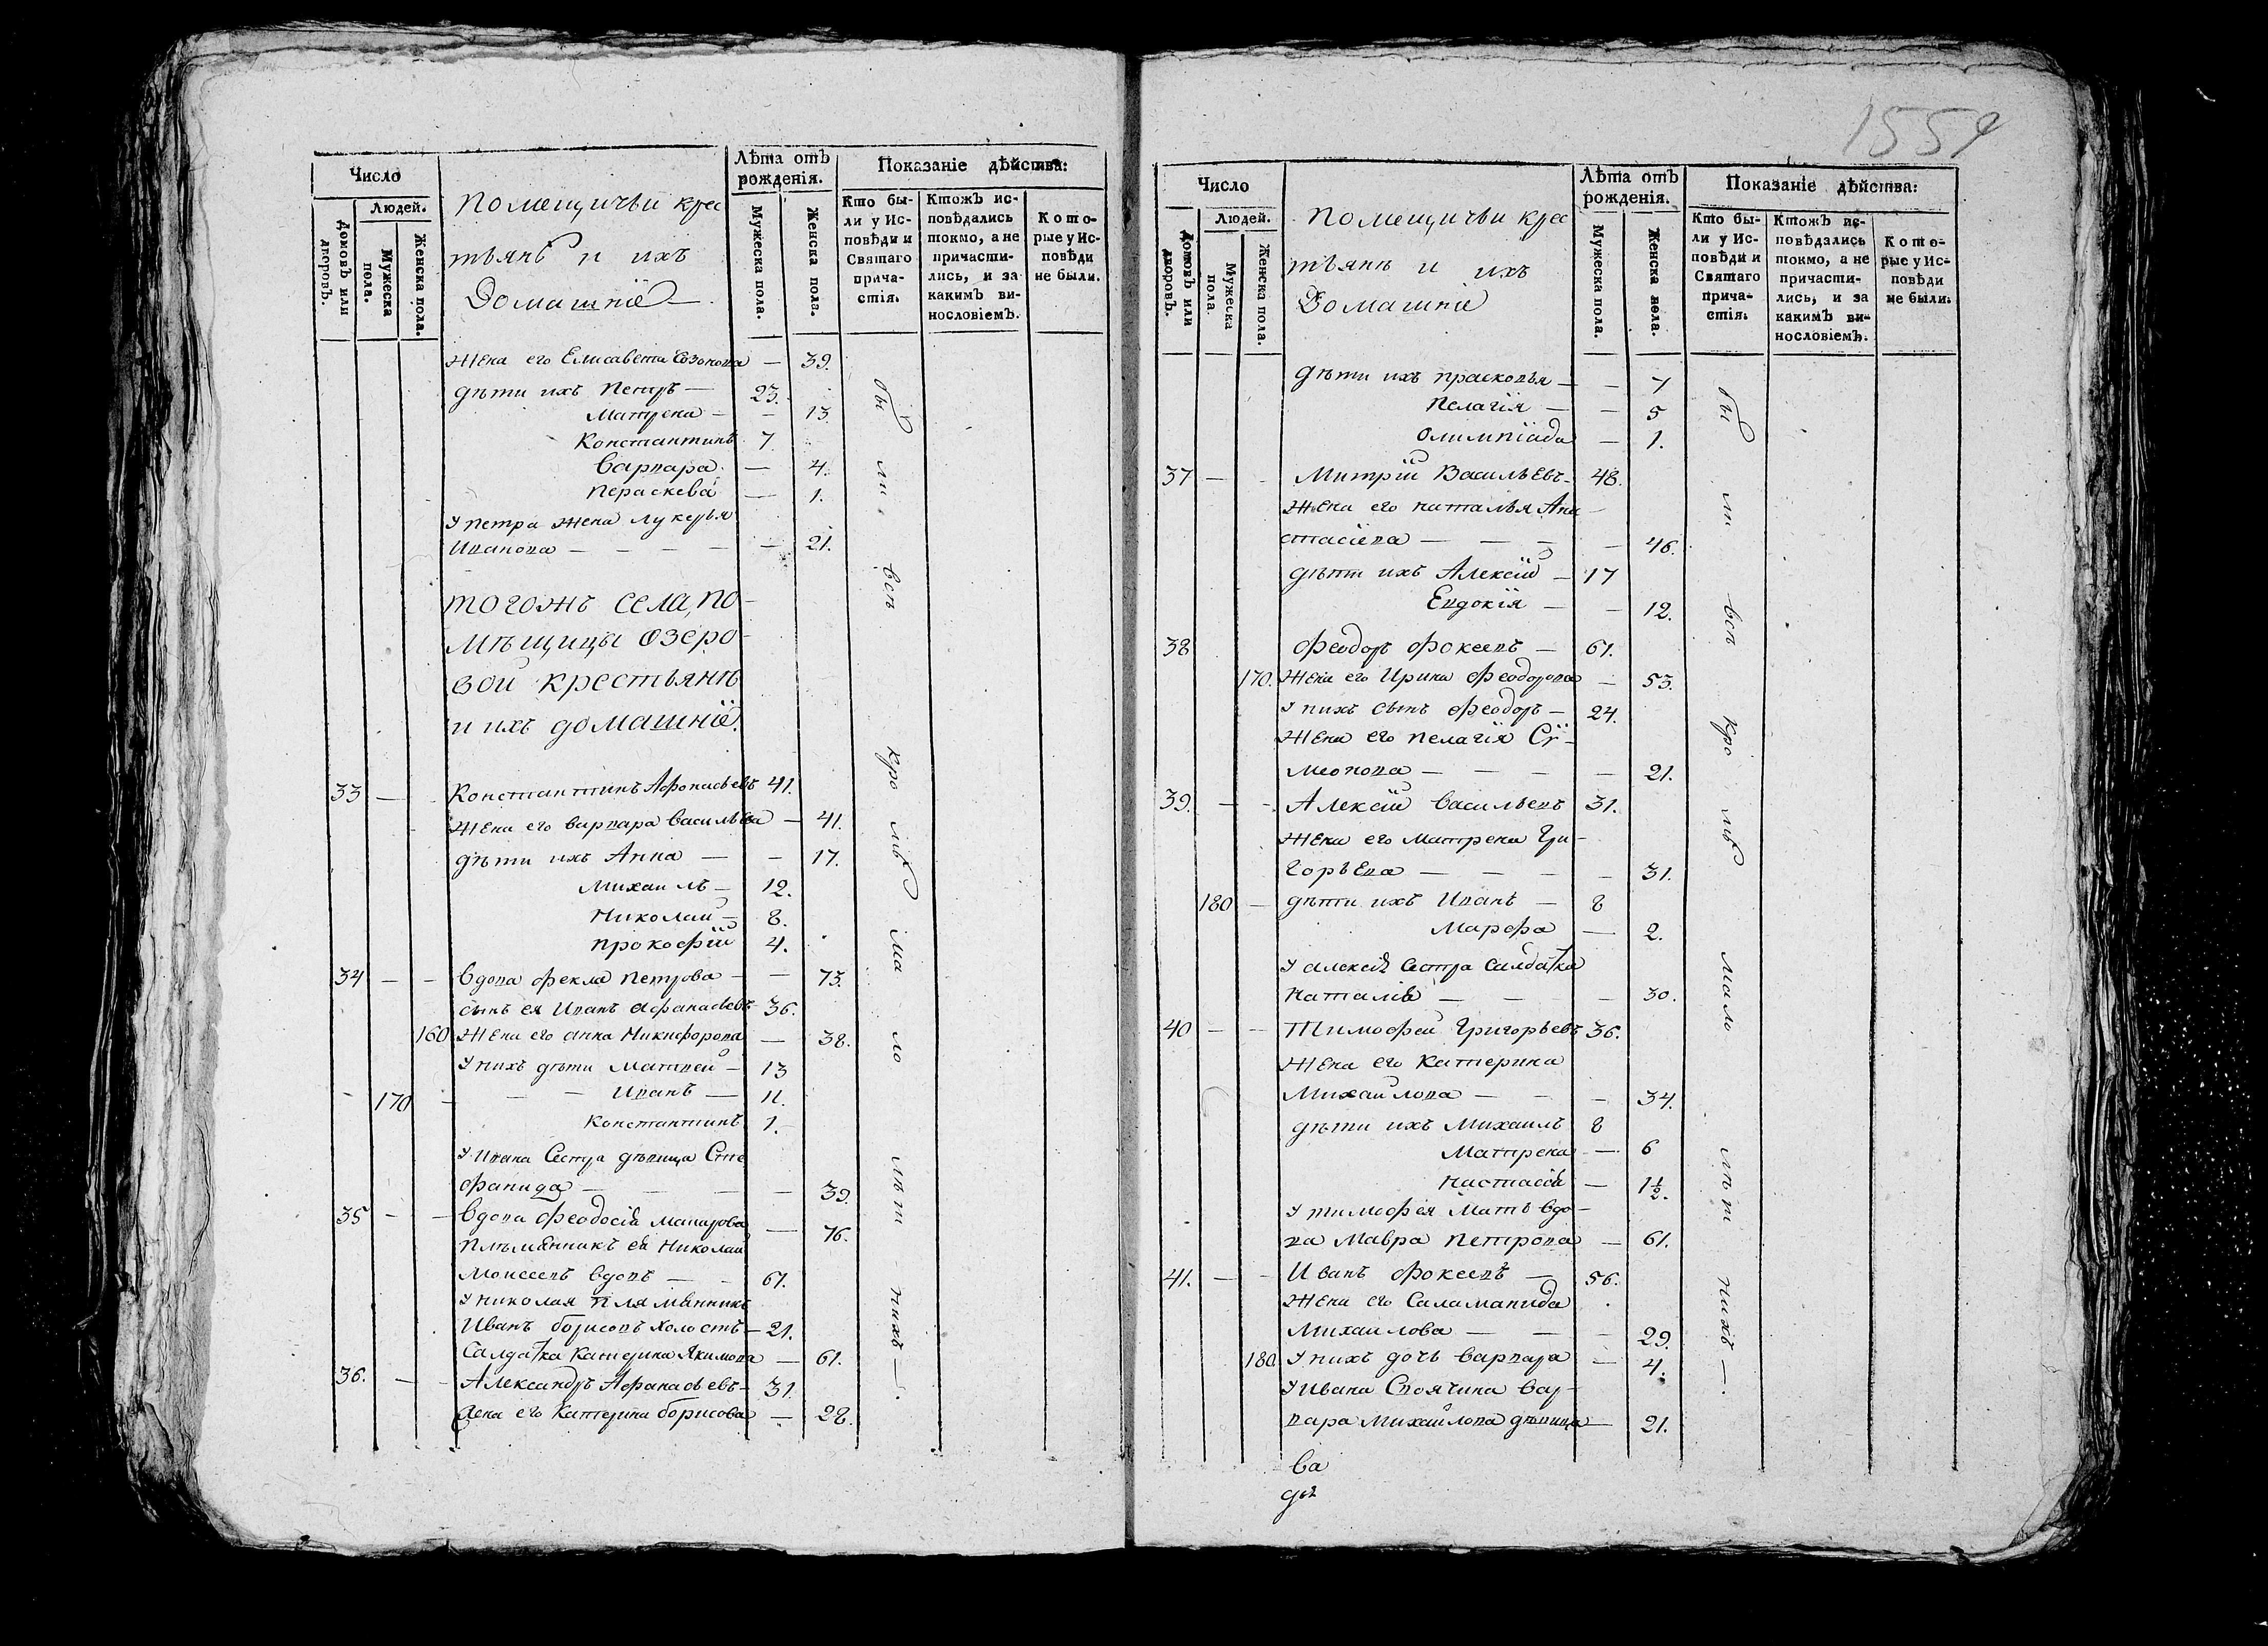 Число
Людей.
Домовъ или дворовъ.
Мужеска пола.
Женска пола.
Помещичьи крес
тьянѣ и ихъ
Домашнiе —
Лѣта отъ рожденія.
Мужеска пола.
Женска пола.
Показаніе дѣйства:
Кто были у Исповѣди и Святаго причастія.
Ктожъ исповѣдались токмо, а не причастились, и за какимъ винословіемъ.
Которые у Исповѣди не были.
Жена его Елисавета Созонова — 39.
дѣти ихъ Петръ — 23.
Матрена — — 13
Константинъ 7
Варвара — 4.
Пераскева — 1.
У Петра жена Лукерья
Иванова — — — — — 21.
Тогожъ села, по-
мѣщицы Озеро-
вой крестьянѣ
и ихъ домашнiе.
33 — Константинъ Афонасьевъ 41.
Жена его Варвара Васильева — 41.
дѣти ихъ Анна — — 17.
Михаилъ — 12.
Николай — 8.
Прокофiй 4.
34 — — Вдова Фекла Петрова — — 73.
сынъ ея Иванъ Афанасьевъ 36.
160 Жена его Анна Никифорова — 38.
У нихъ дѣти Матвей — 13
170 — — — Иванъ — 11.
Константинъ 1.
У Ивана Сестра дѣвица Сте
фанида — — — — 39.
35 — — Вдова Феодосiя Макарова — 76.
Племянникъ ея Николай
Моисеевъ вдовъ — — 61.
У Николая племянникъ
Иванъ Борисовъ холостъ — 21.
Салдатка Катерина Якимова — 61.
36. — — Александръ Афанасьевъ — 31.
Жена его Катерина Борисова — 28.
бы ли всѣ кро мѣ ма ло лѣт нихъ —.
1559
Число
Людей.
Домовъ или дворовъ.
Мужеска пола.
Женска пола.
Помещичьи крес
тьянѣ и ихъ
Домашнiе
Лѣта отъ рожденія.
Мужеска пола.
Женска пола.
Показаніе дѣйства:
Кто были у Исповѣди и Святаго причастія.
Ктожъ исповѣдались токмо, а не причастились, и за какимъ винословіемъ.
Которые у Исповѣди не были.
дѣти ихъ Прасковья — — 7
Пелагiя — — 5
Олимпiада — 1.
37 — Митрiй Васильевъ — 48.
Жена его Наталья Ана
стасiева — — — — 46.
дѣти ихъ Алексiй — 17
Евдокiя — — 12.
38 Феодоръ Фокеевъ — 61.
170. Жена его Ирина Феодорова — 53.
У нихъ сынъ Феодоръ — 24.
Жена его Пелагiя Сѵ-
меонова — — — — 21.
39. — — Алексiй Васильевъ 31.
Жена его Матрена Гри-
горьева — — — — 31.
180 — дѣти ихъ Иванъ — 8
Марфа — 2.
У Алексiя Сестра Салдатка
Наталiя — — — 30.
40 — — Тимофей Григорьевъ 36.
Жена его Катерина
Михайлова — — — 34.
дѣти ихъ Михаилъ 8
Матрена — 6
Настасiя — 1½.
У Тимофея Мать вдо-
ва Мавра Петрова — 61.
41. — — Иванъ Фокеевъ — 56.
Жена его Саламанида
Михаилова — — — 29.
180 У нихъ дочь Варвара — 4.
У Ивана Споячина Вар-
вара Михайлова дѣвица — 21.
бы ли всѣ кро мѣ мало лѣт нихъ —.
Ва